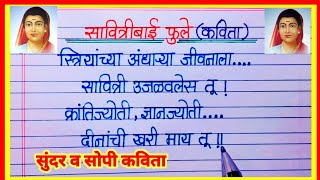 सावित्रीबाई फुले (कविता)
स्त्रियांच्या अंधाऱ्या जीवनाला....
सावित्री उजळवलेस तू !
क्रांतिज्योती, ज्ञानज्योती....
दीनांची खरी माय तू !!
सुंदर व सोपी कविता